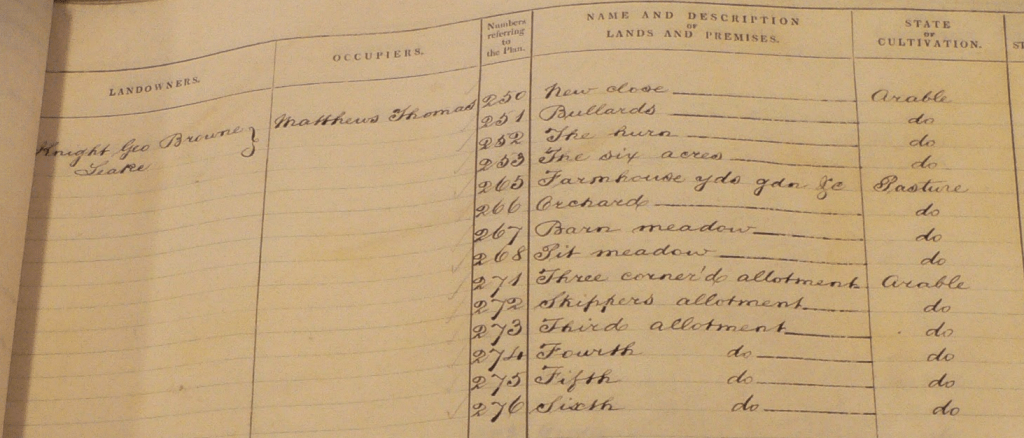 LANDOWNERS. OCCUPIERS. Numbers referring to the Plan. NAME AND DESCRIPTION OF LANDS AND PREMISES. STATE OF CULTIVATION.
Knight Geo Browne } Matthews Thomas 250 New close Arable
Leake 251 Bullards do
252 The hurn do
253 The six acres do
265 Farmhouse yds gdn &c Pasture
266 Orchard do
267 Barn meadow do
268 Pit meadow do
271 Three corner'd allotment Arable
272 Skippers allotment do
273 Third allotment do
274 Fourth do do
275 Fifth do do
276 Sixth do do